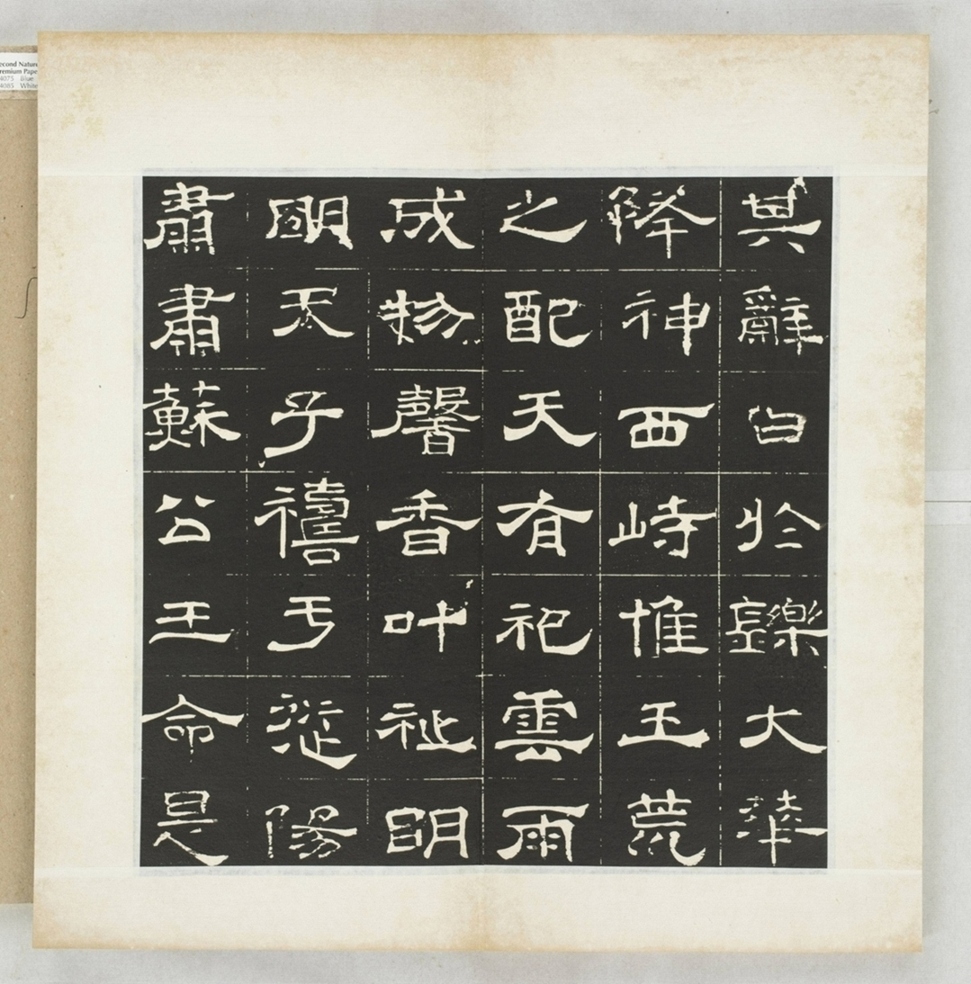 其辭曰於鑠大華
降神西峙惟王荒
之配天有祀雲雨
成物馨香叶祉明
明天子禱于愆陽
肅肅蘇公王命是
econd Natur
remium Pape
4075 Blue
4085 White